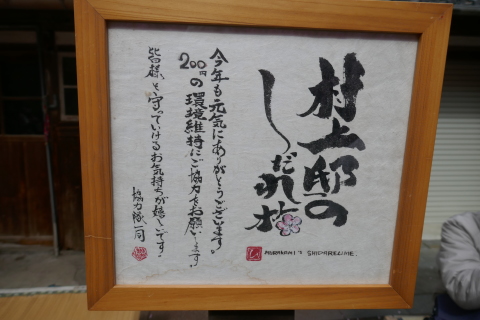 村上邸の
しだれ梅
MURAKAMI'S SHIDAREUME.
今年も元気にありがとうございます。
200円の環境維持にご協力をお願いします!
皆様と守っていけるお気持ちが嬉しいです!
協力隊一同